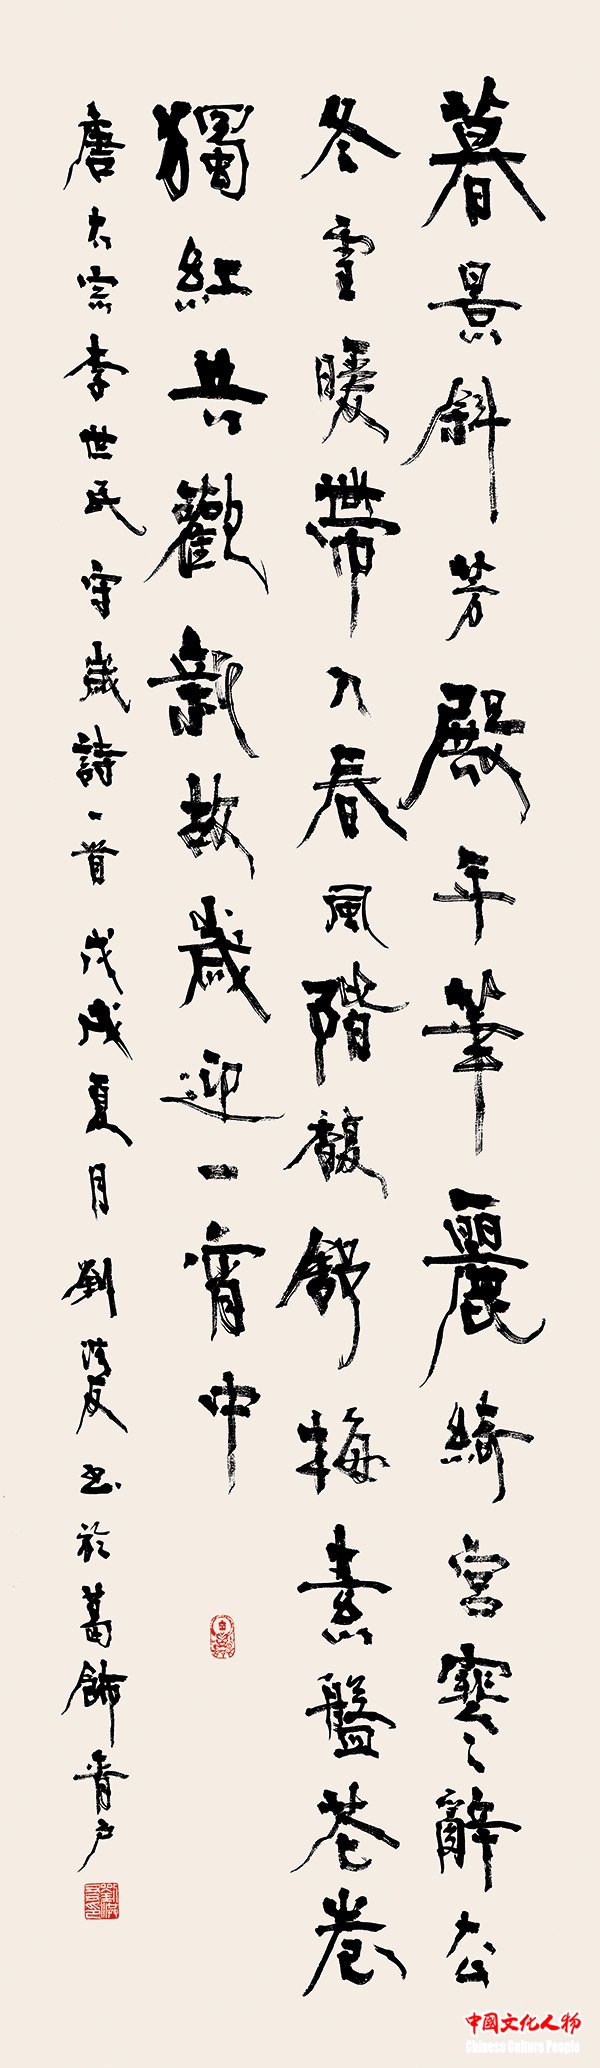 暮景斜芳殿年華麗綺宮寒辭去
冬雪暖帶入春風階馥舒梅素盤花卷
獨紅共歡新故歲迎一宵中
唐太宗李世民守歲詩一首戊戌夏月劉洪友書於葛飾青戶
中國文化人物
Chinese Culture People